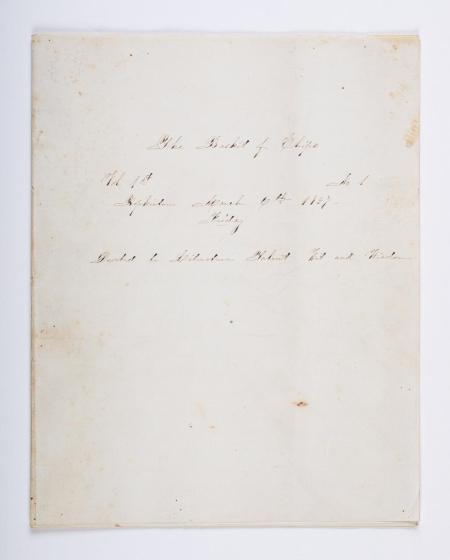 The Basket of Chips
Vol 1st No 1
March
Friday
Devoted to Literature Talent Wit and Wisdom